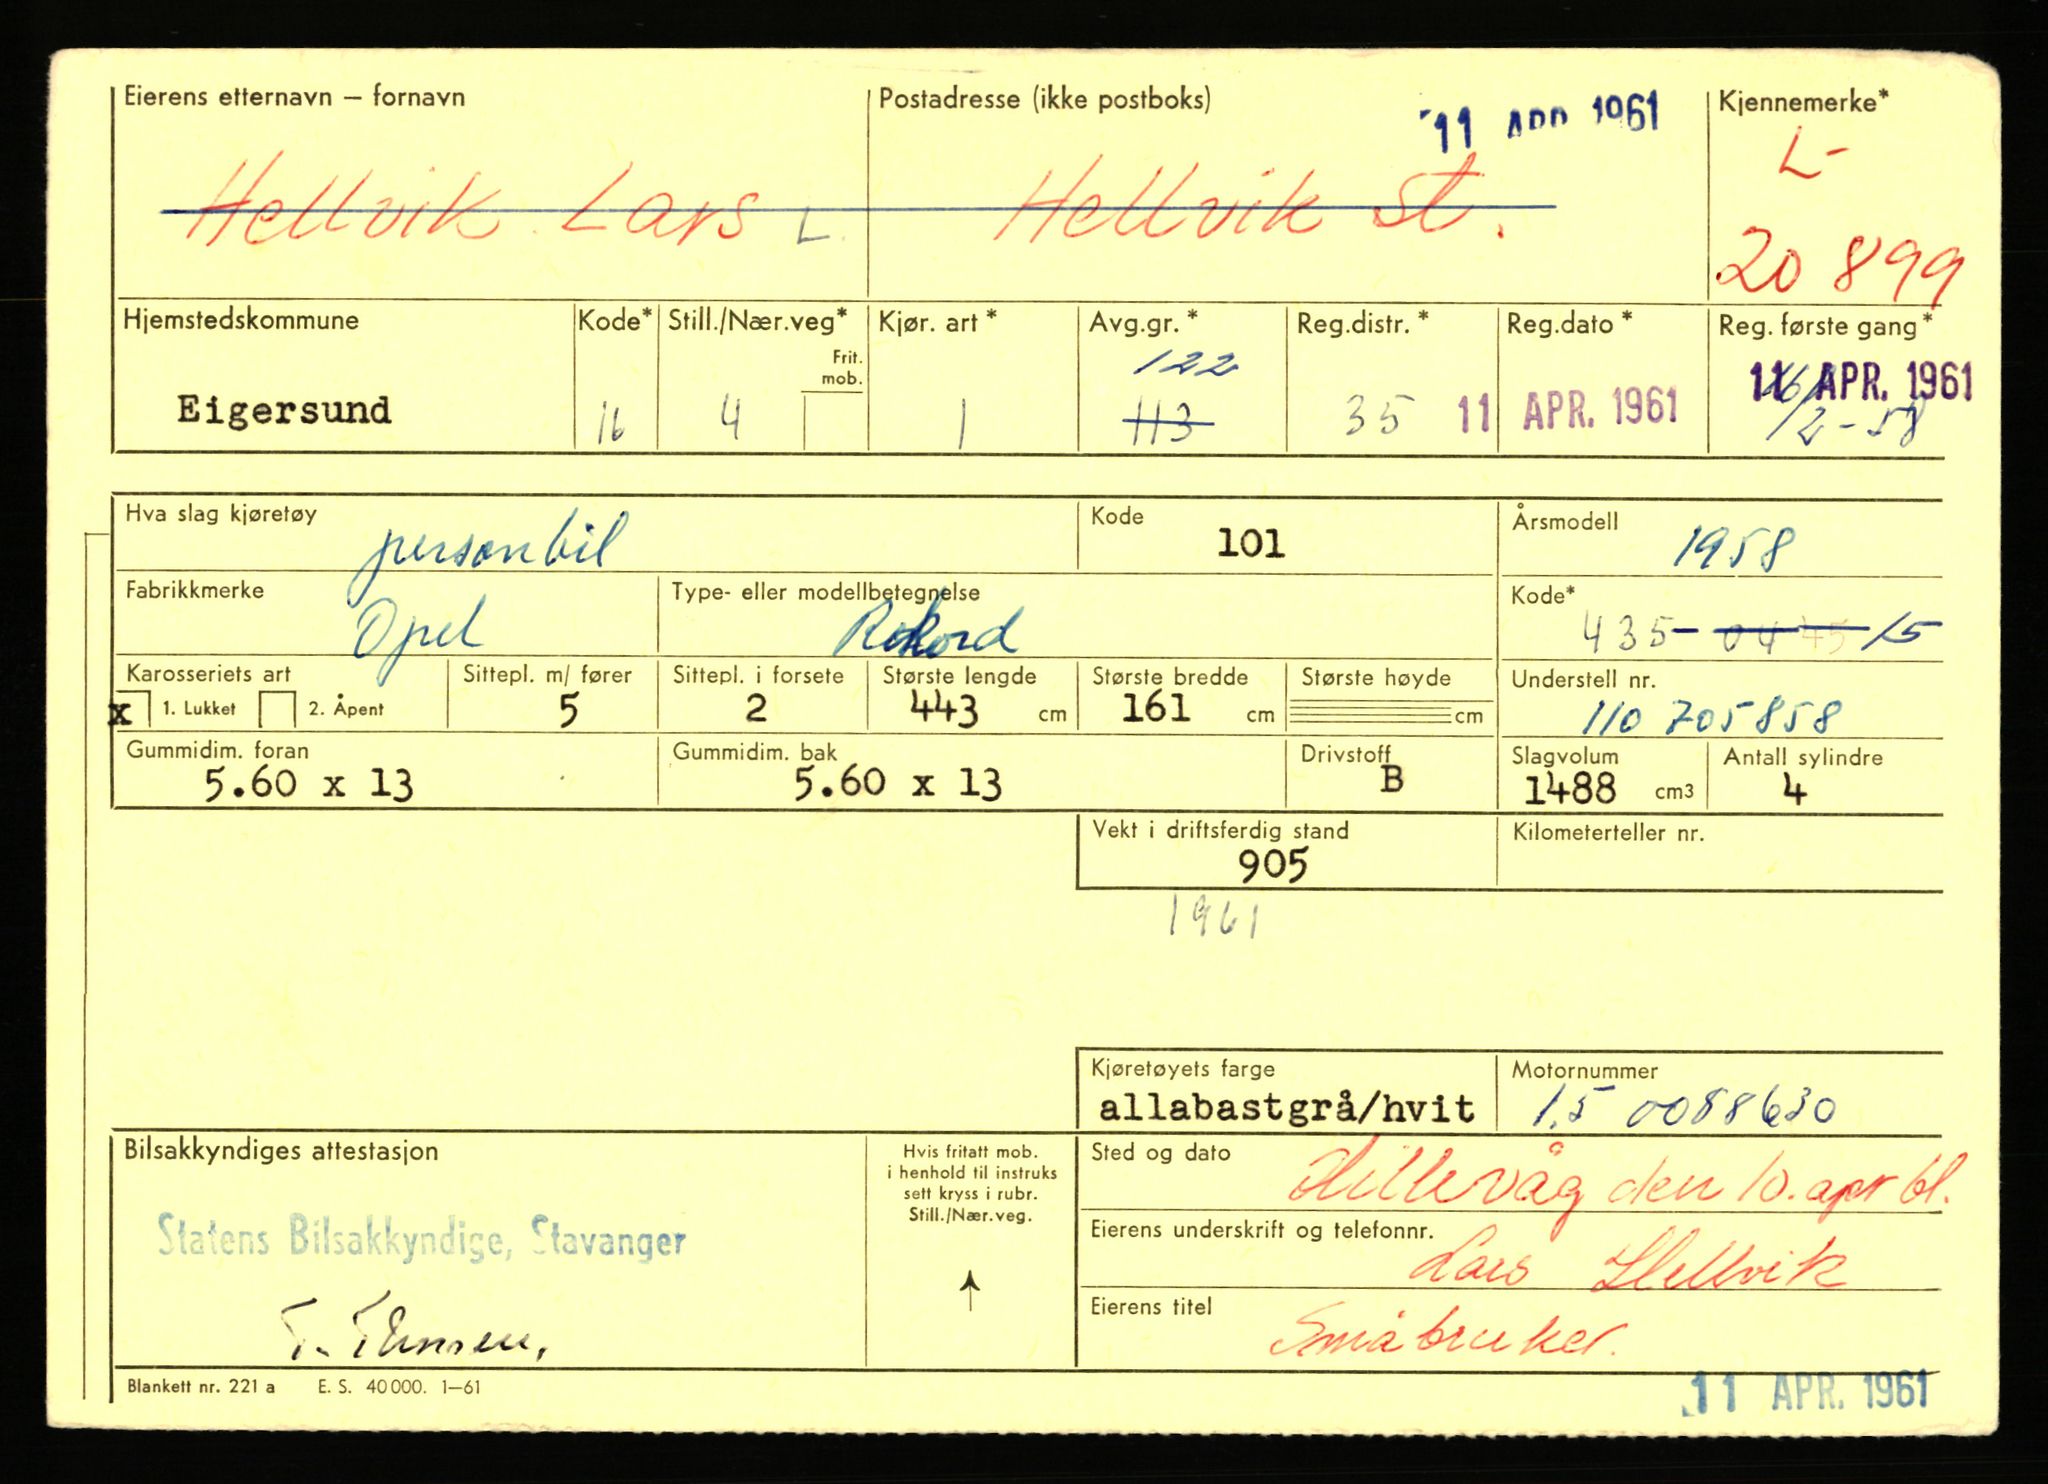 Eierens etternavn – fornavn
Postadresse (ikke postboks)
11 APR 1961
Kjennemerke*
Hellvik Lars L.
Hellvik st.
L-
20 899
Hjemstedskommune
Kode*
Still./Nær.veg*
Frit. mob.
Kjør. art *
Avg.gr. *
Reg.distr. *
Reg.dato *
Reg. første gang *
Eigersund
16
4
1
122
113
35
11 APR. 1961
11 APR. 1961
/2-58
Hva slag kjøretøy
personbil
Kode
101
Årsmodell
1958
Fabrikkmerke
Opel
Type- eller modellbetegnelse
Rekord
Kode*
435- 04 45 15
Karosseriets art
x 1. Lukket 2. Åpent
Sittepl. m/ fører
5
Sittepl. i forsete
2
Største lengde
443 cm
Største bredde
161 cm
Største høyde
cm
Understell nr.
110 705858
Gummidim. foran
5.60 x 13
Gummidim. bak
5.60 x 13
Drivstoff
B
Slagvolum
1488 cm3
Antall sylindre
4
Vekt i driftsferdig stand
905
Kilometerteller nr.
1961
Kjøretøyets farge
allabastgrå/hvit
Motornummer
1,5 0088630
Bilsakkyndiges attestasjon
Statens Bilsakkyndige, Stavanger
Hvis fritatt mob.
i henhold til instruks
sett kryss i rubr.
Still./Nær.veg.
Sted og dato
Hillevåg den 10. apr 61.
Eierens underskrift og telefonnr.
Lars Hellvik
Eierens titel
Småbruker.
Blankett nr. 221 a E. S. 40 000. 1–61
11 APR. 1961